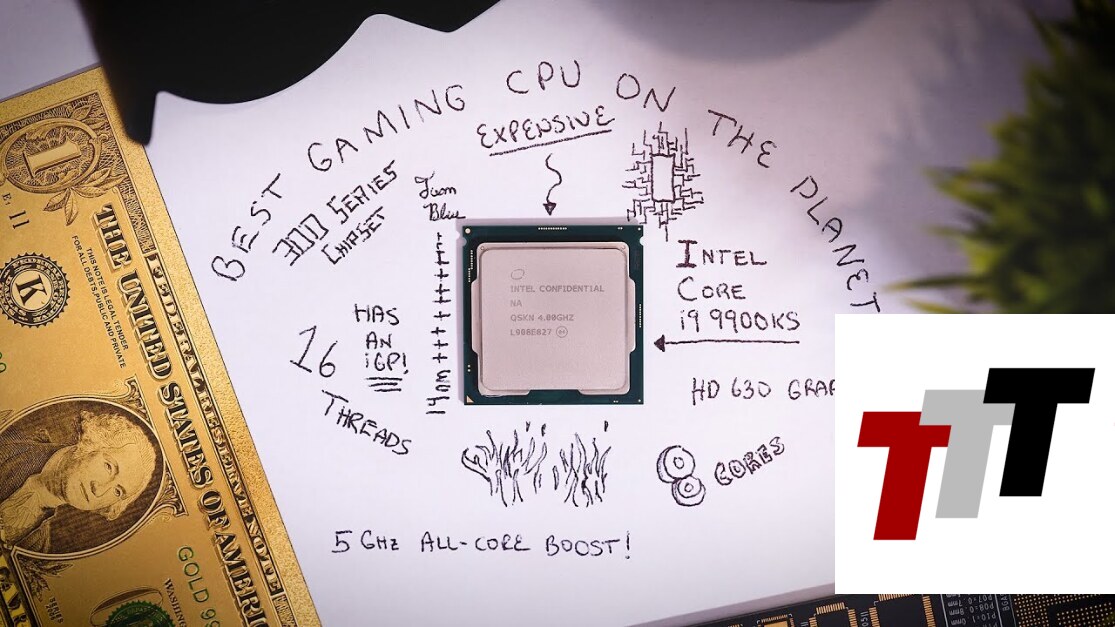 BEST GAMING CPU ON THE PLANET
EXPENSIVE
300 SERIES
CHIPSET
16
THREADS
HAS
AN
iGP!
14nm +++++++
INTEL CONFIDENTIAL
NA
QSKN 4.00GHZ
L908E027
INTEL
CORE
i9 9900KS
HD 630
CORES
5 GHz ALL-CORE BOOST!
TTT
1
E. 11
THE UNITED STATES OF AMERICA
FEDERAL RESERVE NOTE
THIS NOTE IS LEGAL TENDER
FOR ALL DEBTS, PUBLIC AND PRIVATE
K
GOLD